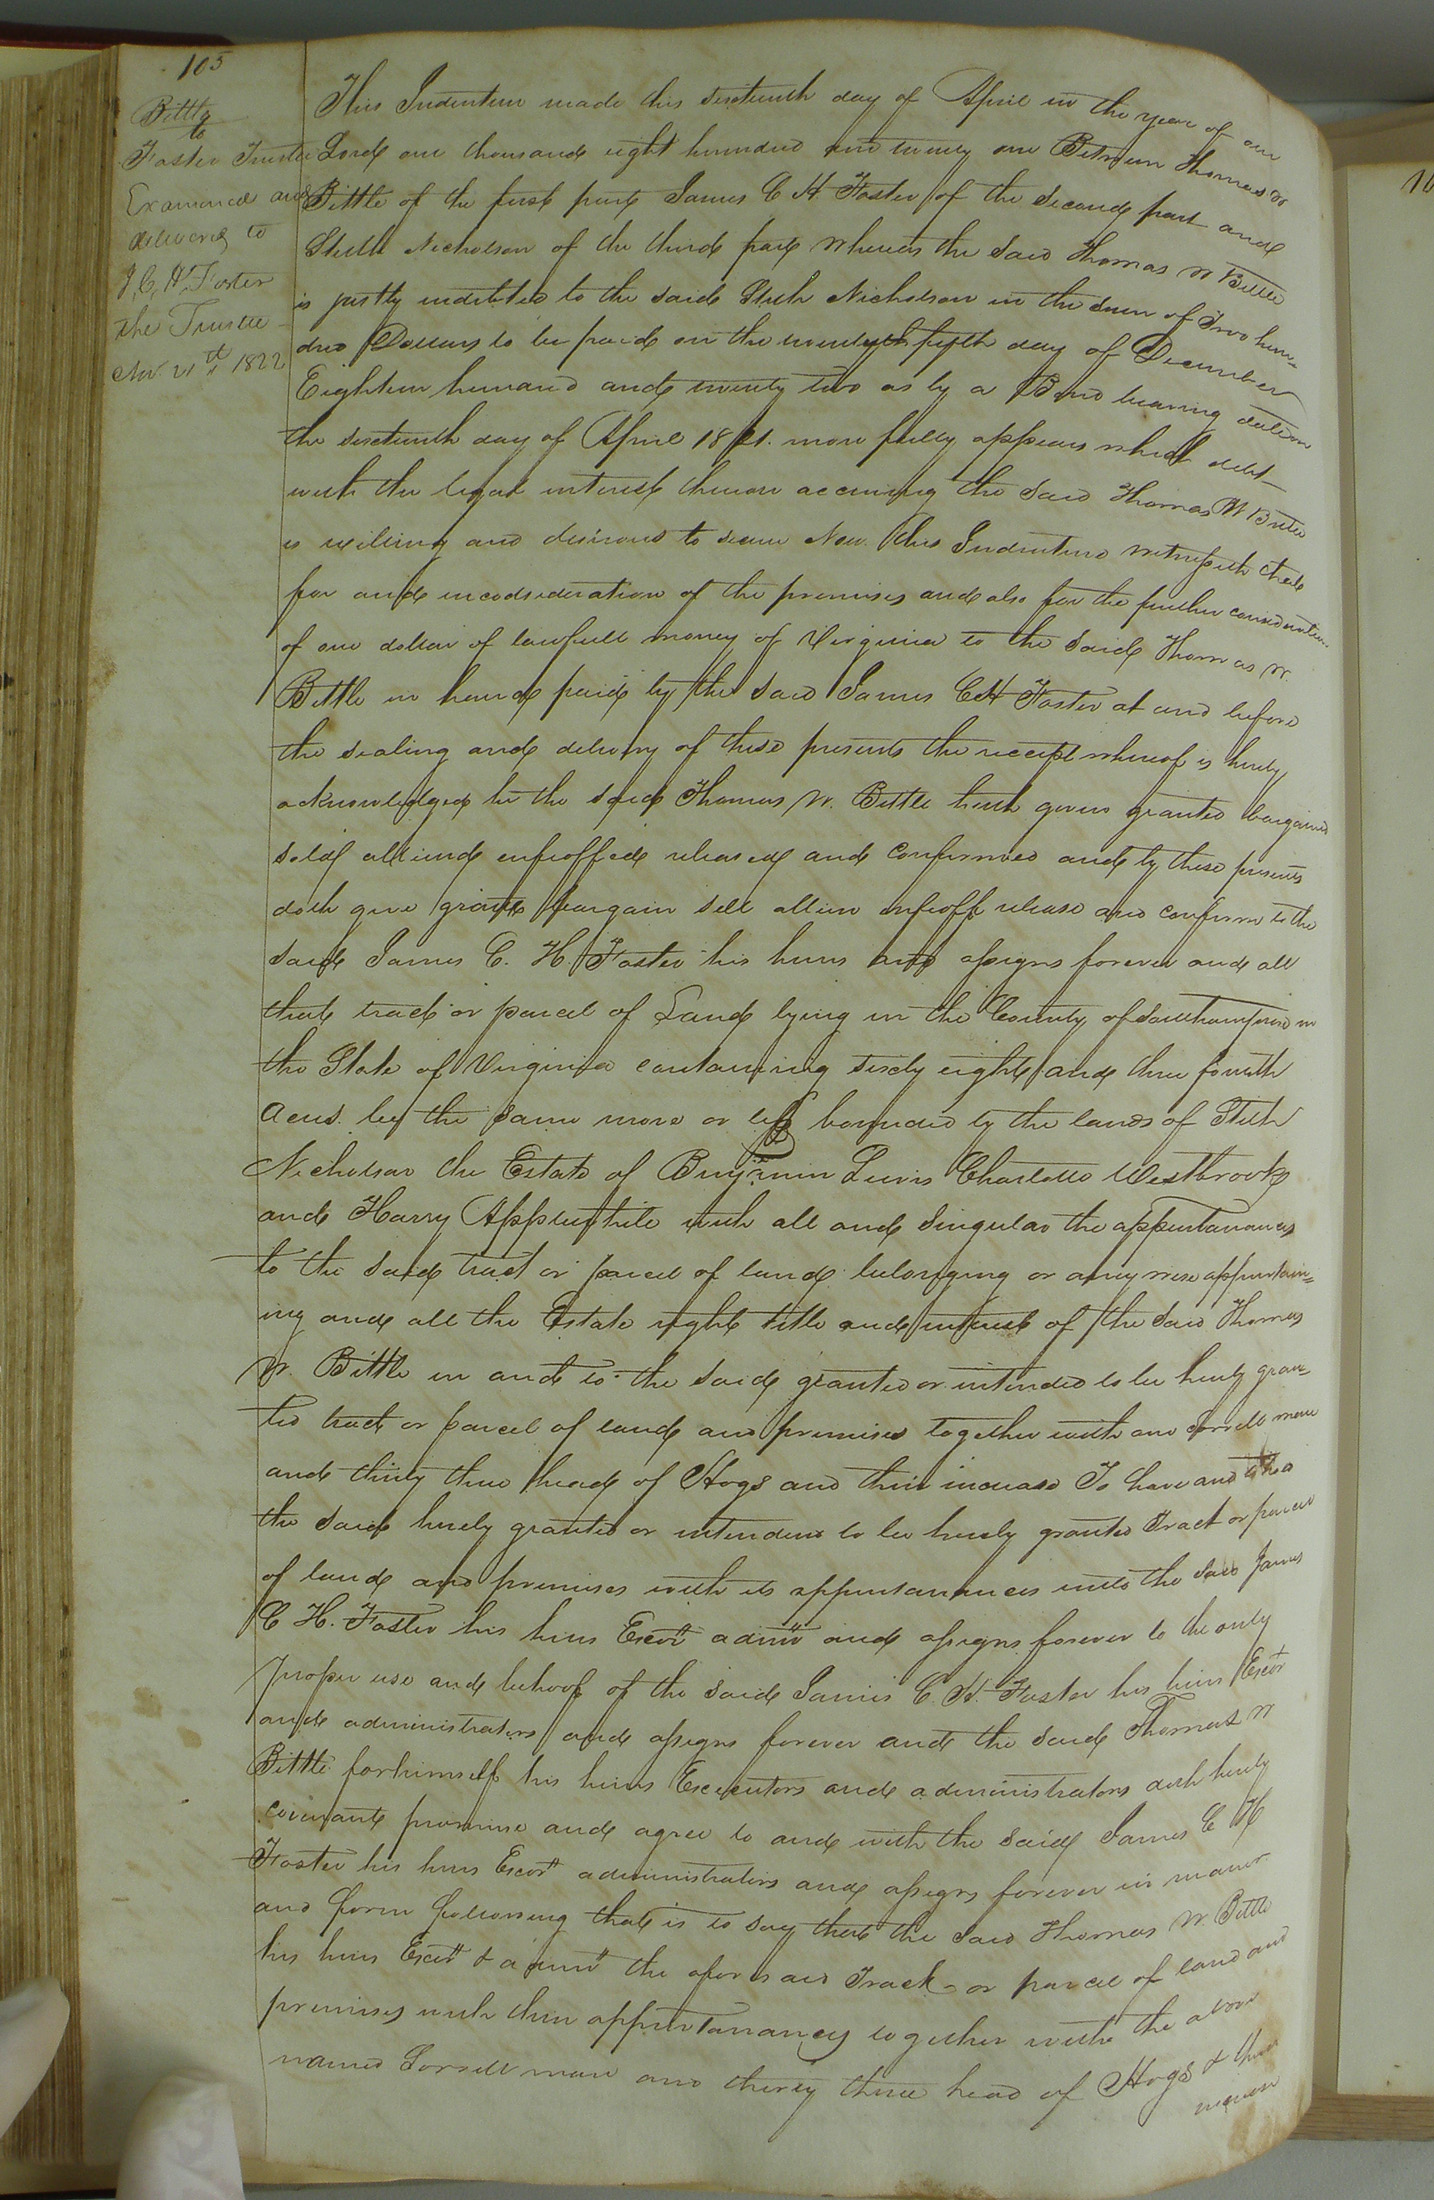 105
Bittle
to
Foster Trustee
Examined and
delivered to
J, C, H, Foster
the Trustee
Nov. 21st 1822
This Indenture made this sixteenth day of April in the year of our
Lord one thousand eight hundred and twenty one Between Thomas W
Bittle of the first part James C H Foster of the Second part and
Stith Nicholson of the third part Whereas the said Thomas W Bittle
is justly indebted to the said Stith Nicholson in the sum of Two hun=
dred Dollars to be paid on the twenty fifth day of December
Eighteen hundred and twenty two as by a Bond bearing date on
the sixteenth day of April 1821. more fully appears which debt
with the legal interest thereon accruing the said Thomas W Bittle
is willing and desirous to secure Now this Indenture witnesseth that
for and in condsideration of the premises and also for the further consideration
of one dollar of lawfull money of Virginia to the said Thomas W.
Bittle in hand paid by the said James C H Foster at and before
the sealing and delivery of these presents the receipt whereof is hereby
acknowledged he the said Thomas W. Bittle hath given granted bargained
sold aliend enfeoffed released and confirmed and by these presents
doth give grant bargain sell alien enfeoff release and confirm to the
said James C. H. Foster his heirs and assigns forever and all
that tract or parcel of Land lying in the County of Southampton in
the State of Virginia containing sixty eight and three fourth
Acres be the same more or less bounded by the lands of Stith
Nicholson the Estate of Benjamin Lewis Charlotte Westbrook
and Harry Applewhite with all and singular the appurtanances
to the said tract or parcel of land belonging or any wise appurtain=
ing and all the Estate right title and interest of the said Thomas
W. Bittle in and to the said granted or intended to be hereby gran=
ted tract or parcel of land and premises together with one sorrell mare
and thirty three head of Hogs and their increase To have and to hold
the said hereby granted or intended to be hereby granted Tract or parcel
of land and premises with its appurtanances unto the said James
C H. Foster his heirs Exors admrs and assigns forever to the only
proper use and behoof of the said James C. H. Foster his heirs Exors
and administrators and assigns forever and the said Thomas W
Bittle for himself his heirs Executors and administrators doth hereby
covenant promise and agree to and with the said James C H
Foster his heirs Exors administrators and assigns forever in maner
and form following that is to say that the said Thomas W. Bittle
his heirs Exors & admrs the aforesaid Track or parcel of land and
premises with their appurtanances together with the above
named Sorrell mare and thirty three head of Hogs & their
increase